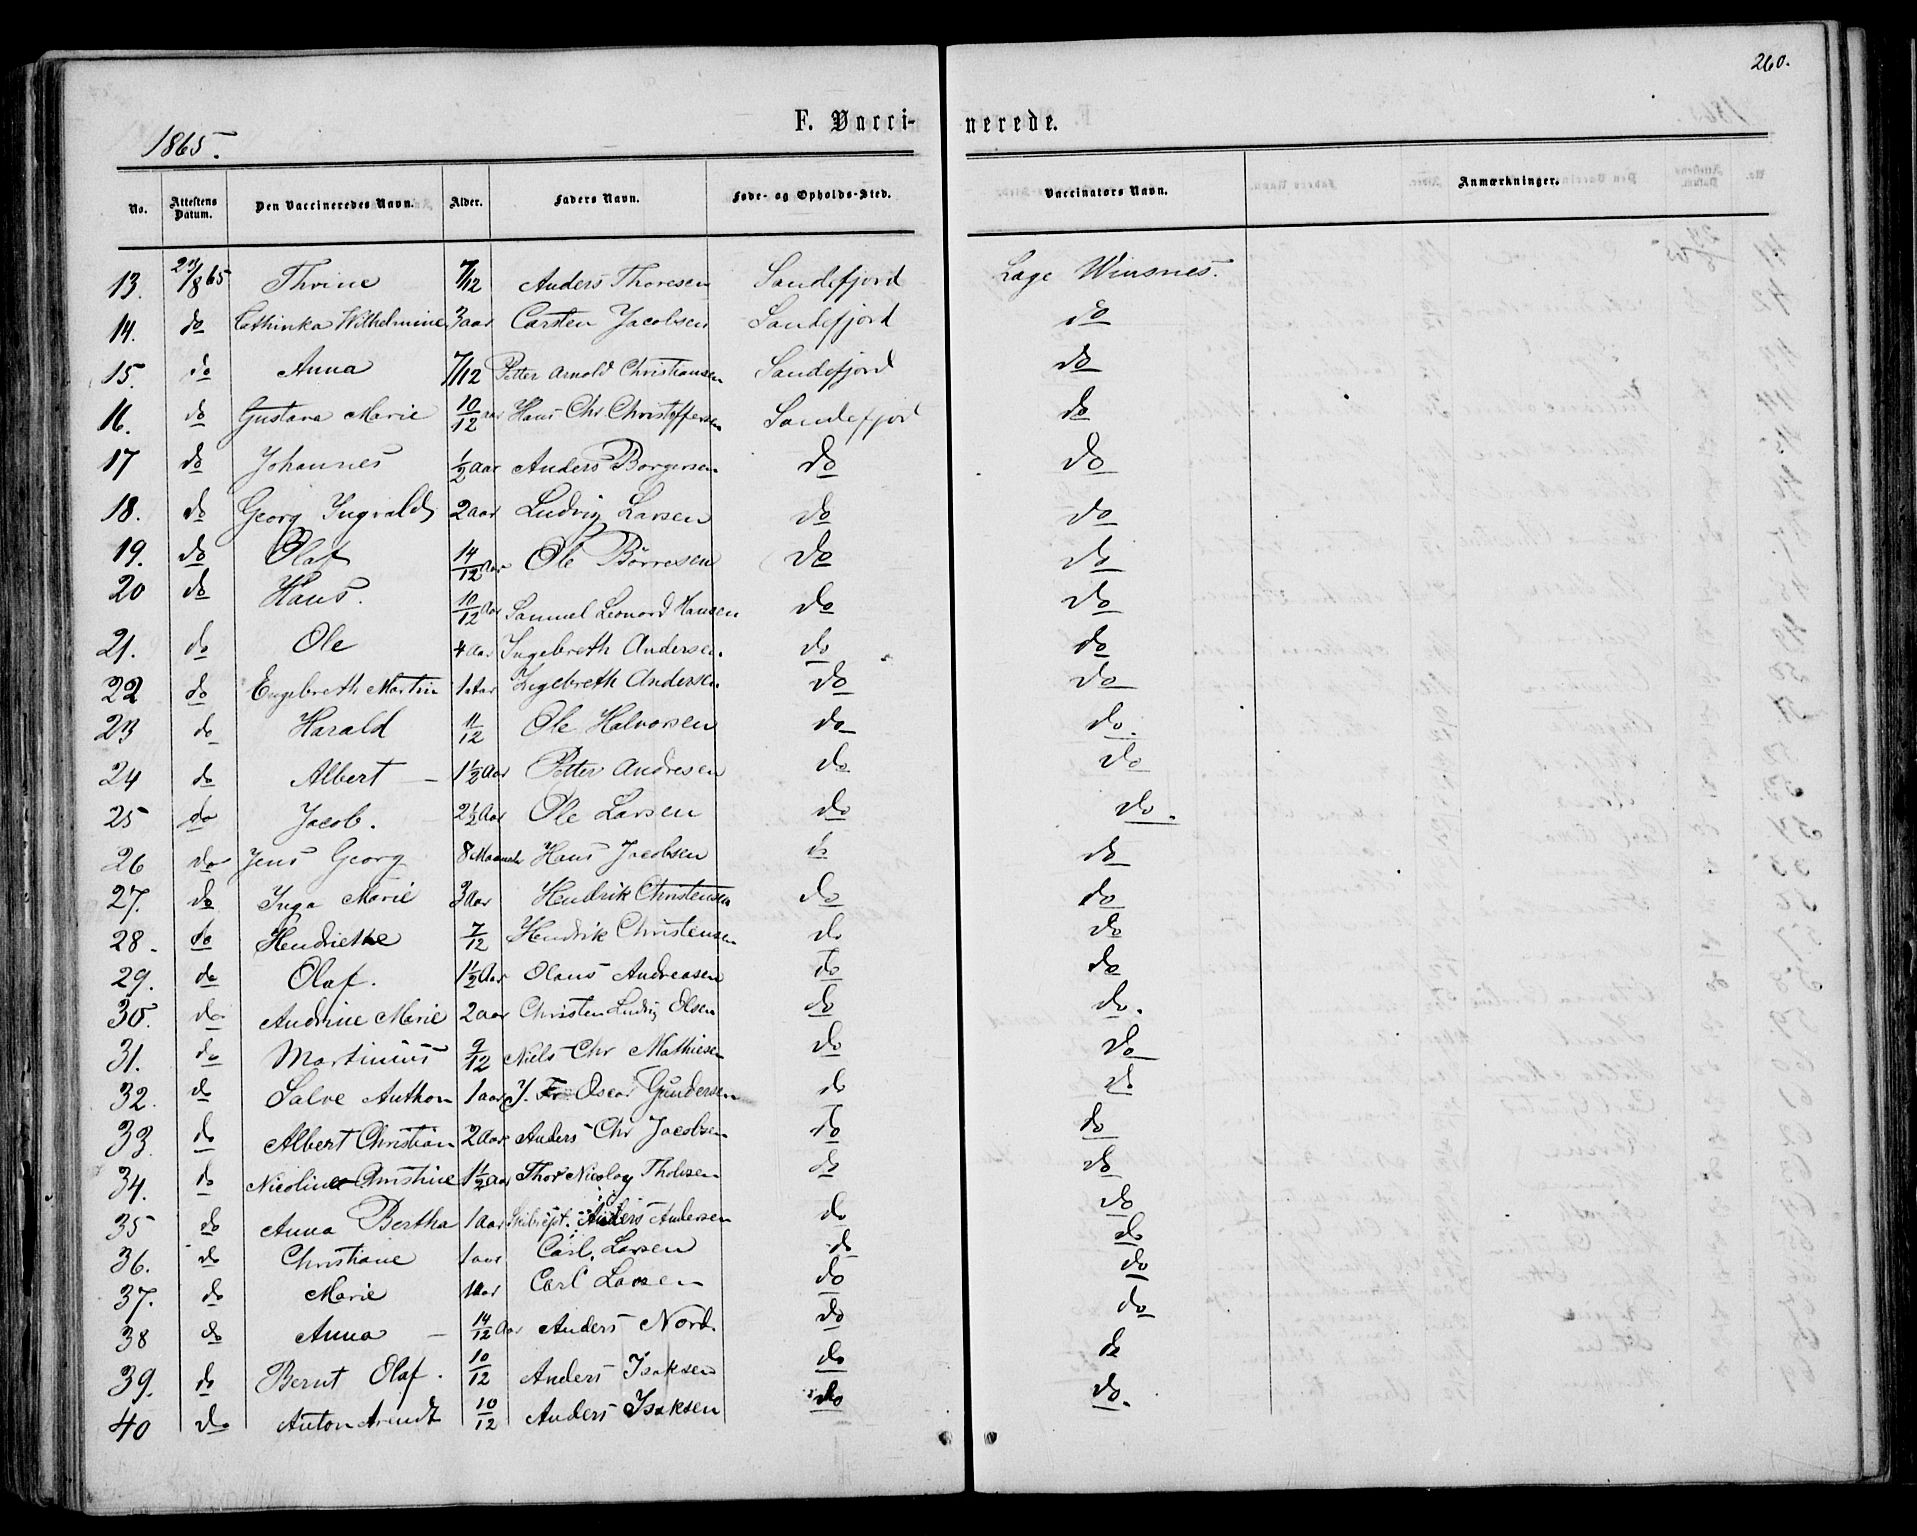 260.
1865.
F. Vacci- nerede.
No. Attestens Datum. Den Vaccineredes Navn. Alder. Faders Navn. Føde- og Opholds-Sted. Vaccinators Navn. Anmærkninger.
13. 24/8 65 Thrine 7/12 Anders Thoresen Sandefjord Lage Winsnes.
14. do Cathinka Wilhelmine 3 aar Carsten Jacobsen Sandefjord do
15. do Anna 7/12 Petter Arnold Christiansen Sandefjord do
16. do Gustava Marie 10/12 aar Hans Chr Christoffersen Sandefjord do
17 do Johannes 1/2 Aar Anders Borgersen do do
18. do Georg Ingvald 2 aar Ludvig Larsen do do
19. do Olaf 14/12 Aar Ole Børresen do do
20 do Hans. 10/12 Aar Samuel Leonard Hansen do do
21. do Ole 4 Aar Ingebreth Andersen. do do
22 do Engebreth Martin 1 Aar Ingebreth Andersen. do do
23 do Harald 11/12 Ole Halvorsen do do.
24 do Albert 1 1/2 Aar Petter Andresen do do
25 do Jacob. 2 1/2 Aar Ole Larsen do do.
26 do Jens Georg 8 Maaneder Hans Jacobsen do do
27. do Inga Marie 3 Aar Hendrik Christensen do do
28. do Hendriette 7/12 Hendrik Christensen do do
29. do Olaf. 1 1/2 Aar Olaus Andreasen do do
30. do Andrine Marie 2 aar Christen Ludvig Olsen do do.
31. do Martinius 9/12 Niels Chr Mathiesen do do
32. do Salve Anthon 1 aar J. Fr. Oscar Gundersen do do
33. do Albert Christian 2 Aar Anders Chr Jacobsen do do
34. do Nicoline Christine 1 1/2 Aar Thor Nicolay Tholesen do do
35 do Anna Bertha 1 Aar Anders Andersen do do
36. do Christiane 1 aar Carl. Larsen do do
37. do Marie 1 Aar Carl Larsen do do
38 do Anna 14/12 Aar Anders Nord. do do
39. do Bernt Olaf. 10/12 Anders Isaksen do do
40 do Anton Arendt 10/12 Anders Isaksen do do.